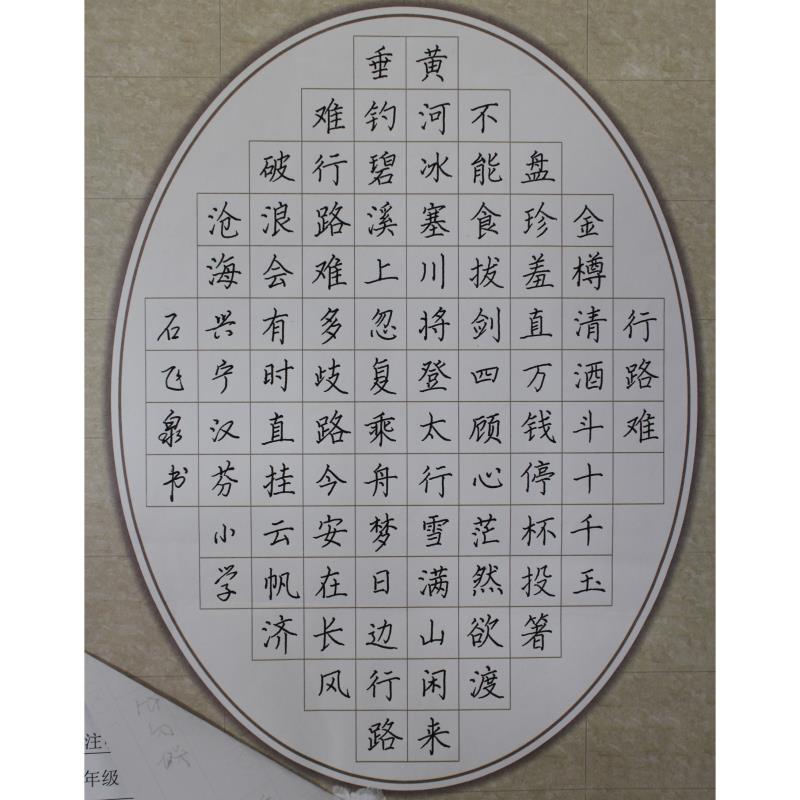 行路难
金樽清酒斗十千玉
盘珍羞直万钱停杯投箸
不能食拔剑四顾心茫然欲渡
黄河冰塞川将登太行雪满山闲来
垂钓碧溪上忽复乘舟梦日边行路
难行路难多歧路今安在长风
破浪会有时直挂云帆济
沧海兴宁汉芬小学
石飞泉书
注:
年级